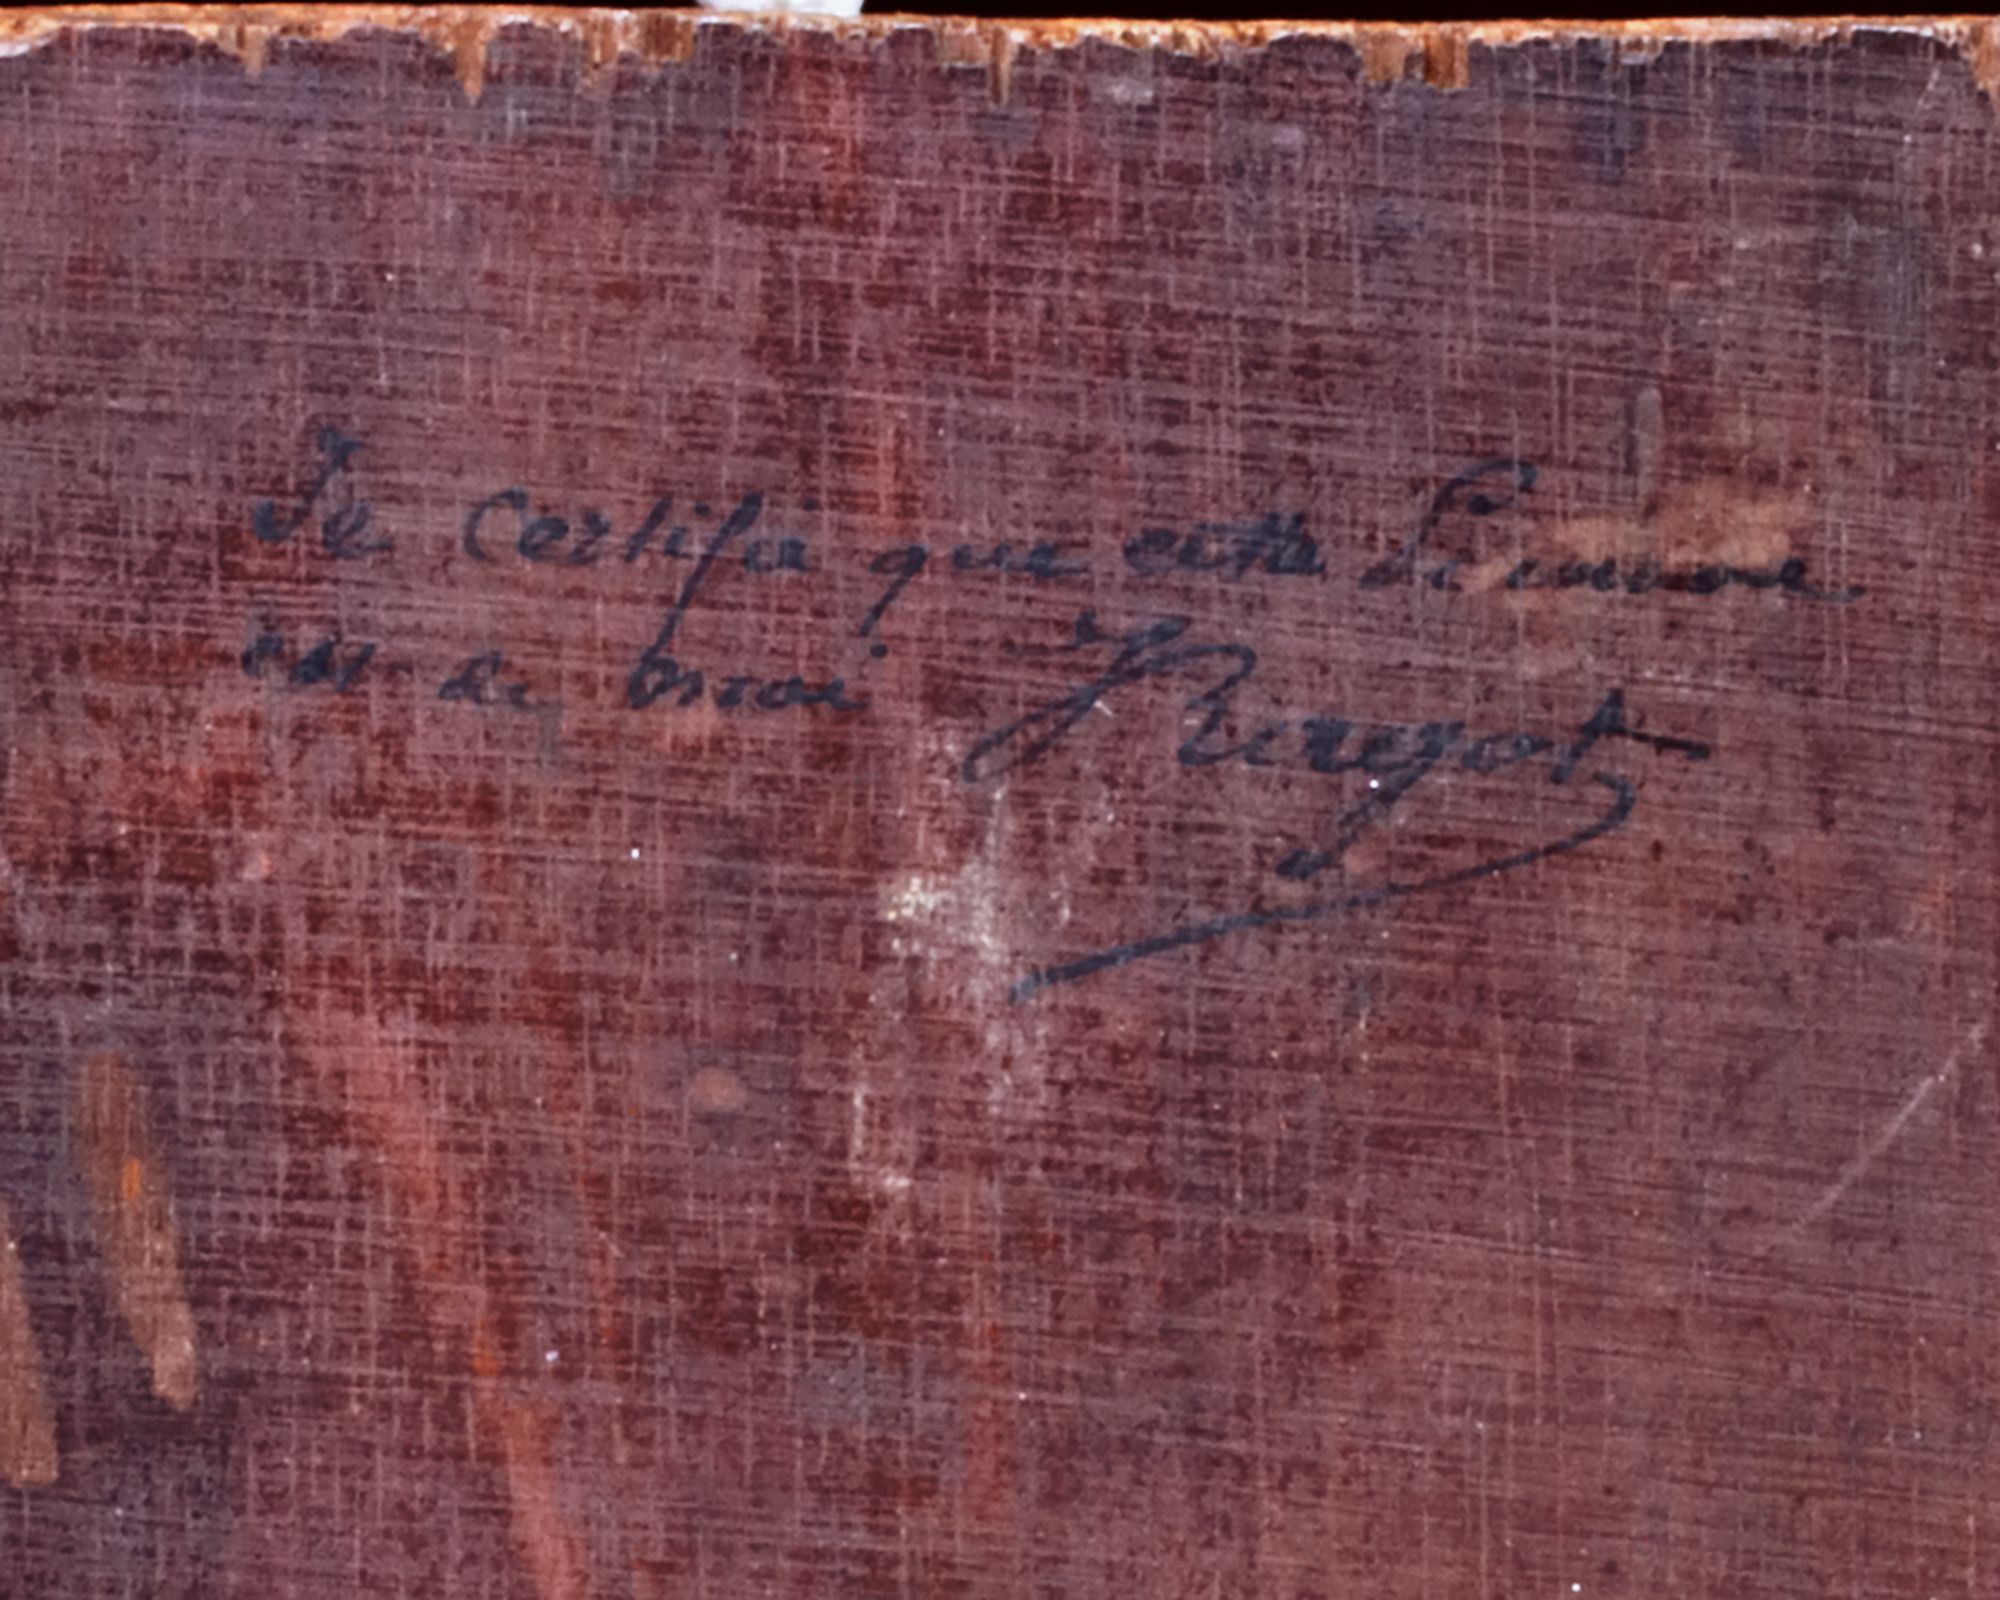 Je certifie que cette Peinture
est de moi